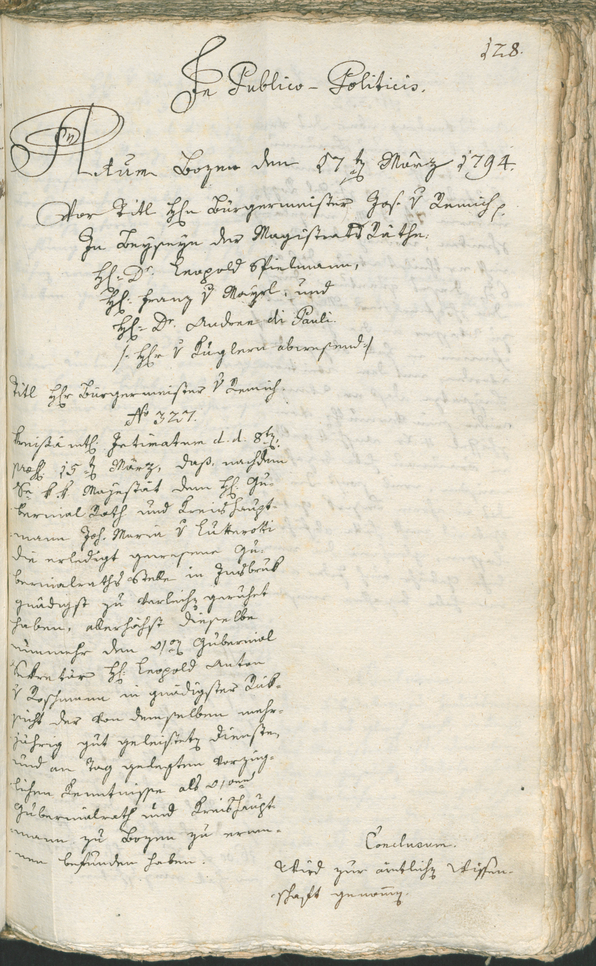 128.
In Publico-Politicis.
Actum Bozen den 17t März 1794.
Vor Titl Hhn Bürgermeister Jos. v Remich,
In Beyseyn der Magistrats Räthe,
Hh: Dr. Leopold Spielmann,
Hh: Franz v Mayrl, und
Hh: Dr. Andree di Pauli.
/: Hhr v Kuglern abwesend :/
Titl Hhr Bürgermeister v Remich.
No 327.
Kreisämtl. Intimatum d. d. 8t,
15t März, daß, nachdem
Se k k Majestät dem Hh: Gu-
bernial Rath und Kreishaupt-
mann Joh. Maria v Lutterotti
die erledigt gewesene Gu-
bernialraths Stelle in Insbruk
gnädigst zu verleihen geruhet
haben, allerhöchst dieselbe
nunmehr dem Gubernial
Sekretär Hh: Leopold Anton
v Roschmann in gnädigster Rük-
sicht der von demselben mehr-
jährig gut geleisteten Dienste,
und an Tag gelegten vorzüg-
lichen Kenntnisse als
Gubernialrath und Kreishaupt-
mann zu Bozen zu ernen-
nen befunden haben.
Conclusum.
Wird zur ämtlichen Wissen-
schaft genommen.